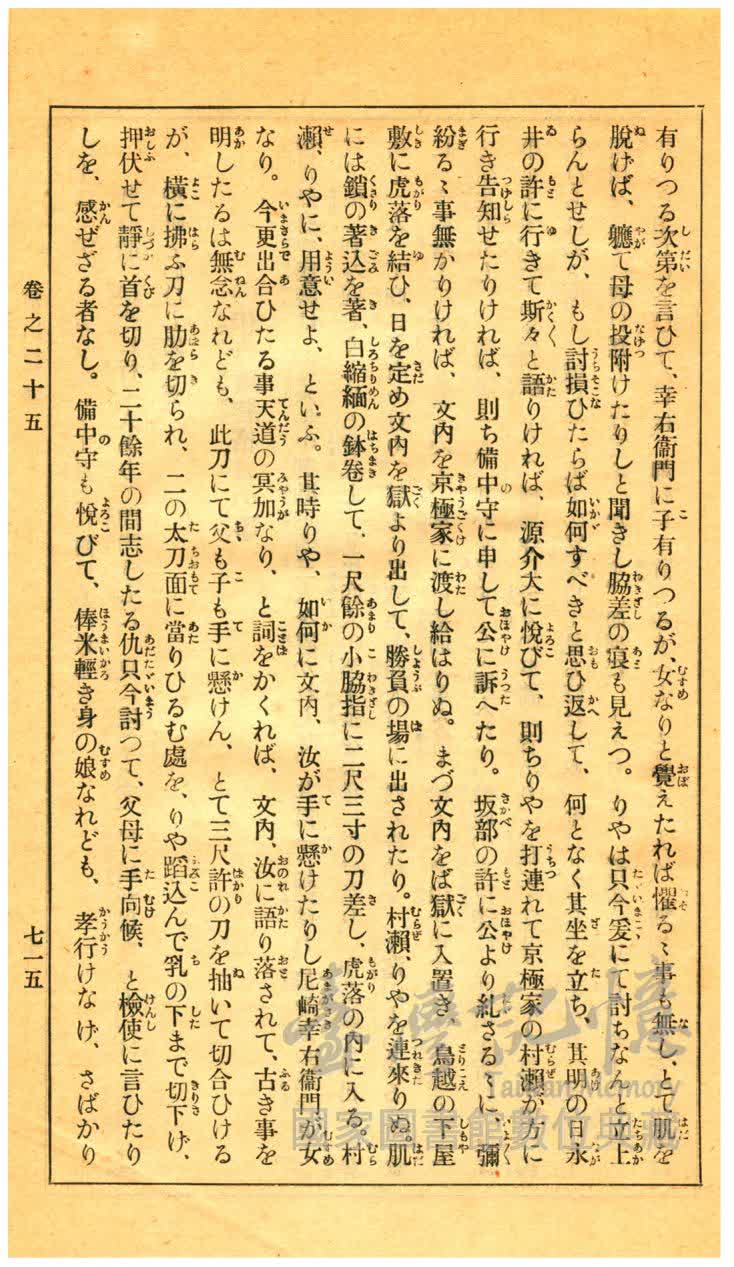 有りつる次第を言ひて、幸右衞門に子有りつるが、女なりと覺えたれば懼るゝ事も無し、とて肌を
脱げば、軈て母の投附けたりしと聞きし脇差の痕も見えつ。りやは只今爰にて討ちなんと立上
らんとせしが、もし討損ひたらば如何すべきと思ひ返して、何となく其坐を立ち、其明の日永
井の許に行きて斯々と語りければ、源介大に悅びて、則ちりやを打連れて京極家の村瀨が方に
行き告知せたりければ、則ち備中守に申して公に訴へたり。坂部の許に公より糺さるゝに、彌
紛るゝ事無かりければ、文內を京極家に渡し給はりぬ。まづ文內をば獄に入置き、鳥越の下屋
敷に虎落を結ひ、日を定め文內を獄より出して、勝負の場に出されたり。村瀨、りやを連來りぬ。肌
には鎖の著込を著、白縮緬の鉢卷して、一尺餘の小脇指に二尺三寸の刀差し、虎落の內に入る。村
瀨、りやに、用意せよ、といふ。其時りや、如何に文內、汝が手に懸けたりし尼崎幸右衞門が女
なり。今更出合ひたる事天道の冥加なり、と詞をかくれば、文內、汝に語り落されて、古き事を
明したるは無念なれども、此刀にて父も子も手に懸けん、とて三尺許の刀を抽いて切合ひける
が、橫に拂ふ刀に肋を切られ、二の太刀面に當りひるむ處を、りや蹈込んで乳の下まで切下げ、
押伏せて靜に首を切り、二十餘年の間志したる仇只今討つて、父母に手向候、と檢使に言ひたり
しを、感ぜざる者なし。備中守も悅びて、俸米輕き身の娘なれども、孝行けなげ、さばかり
卷之二十五
七一五
臺灣記憶
Taiwan Memory
國家圖書館數位典藏